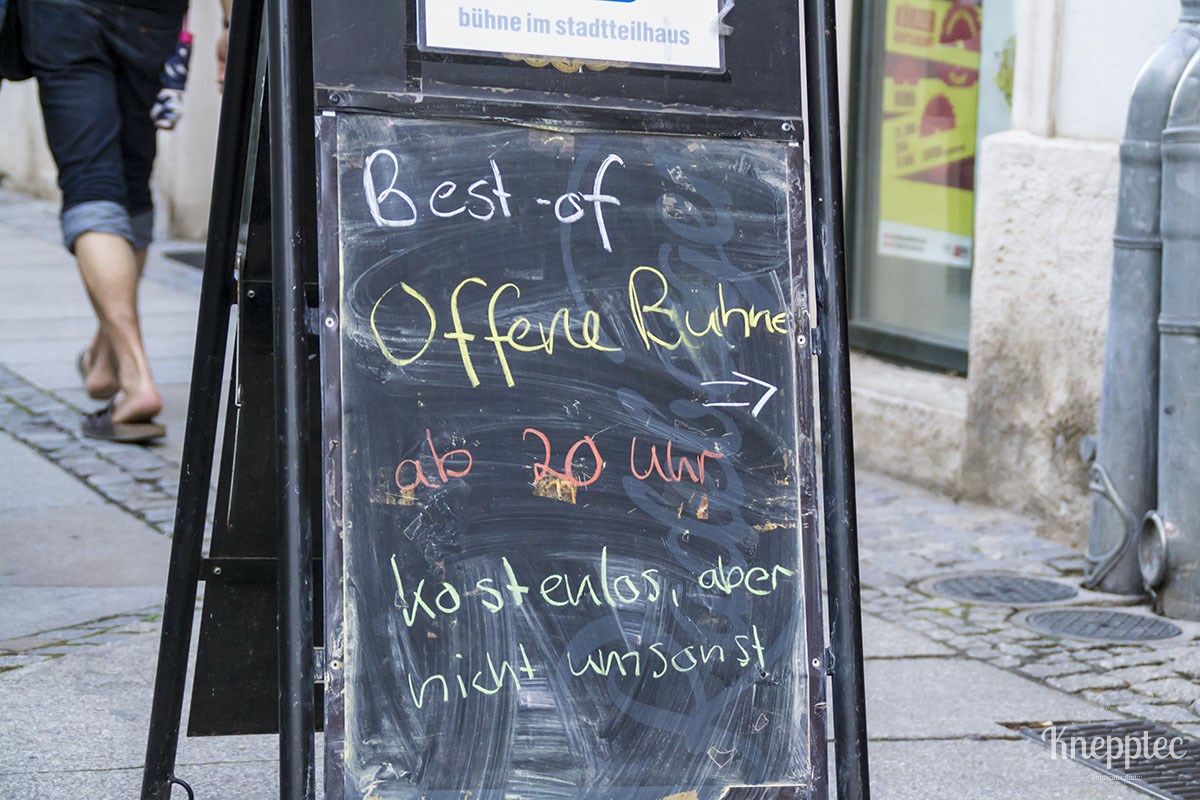 bühne im stadtteilhaus
Best-of
Offene Bühne
→
ab 20 Uhr
kostenlos, aber
nicht umsonst
Knepptec